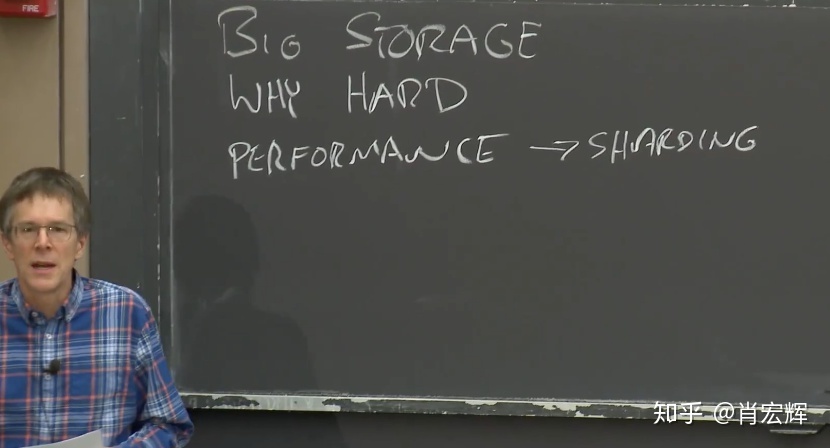 FIRE
BIG STORAGE
WHY HARD
PERFORMANCE → SHARDING
知乎 @肖宏辉